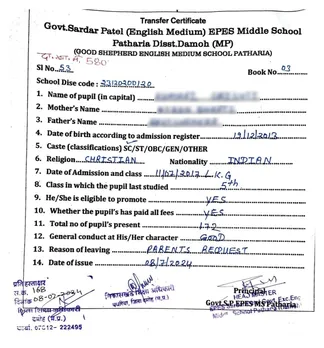 Transfer Certificate
Govt.Sardar Patel (English Medium) EPES Middle School
Patharia Disst.Damoh (MP)
(GOOD SHEPHERD ENGLISH MEDIUM SCHOOL PATHARIA)
580
Sl No. 53 Book No. 03
School Dise code : 23120300120
1. Name of pupil (in capital)
2. Mother's Name
3. Father's Name
4. Date of birth according to admission register 19/12/2013
5. Caste (classifications) SC/ST/OBC/GEN/OTHER
6. Religion CHRISTIAN Nationality INDIAN
7. Date of Admission and class 11/07/2017 L.K.G
8. Class in which the pupil last studied 5th
9. He/She is eligible to promote YES
10. Whether the pupil's has paid all fees YES
11. Total no of pupil's present 172
12. General conduct at His/Her character GOOD
13. Reason of leaving PARENTS REQUEST
14. Date of issue 08/7/2024
प्रति हस्ताक्षर
स.क्र. 168
दिनांक 08-07-2024
Principal
Govt.S.P.EPES MS Patharia
HEADMASTER
07512- 222495